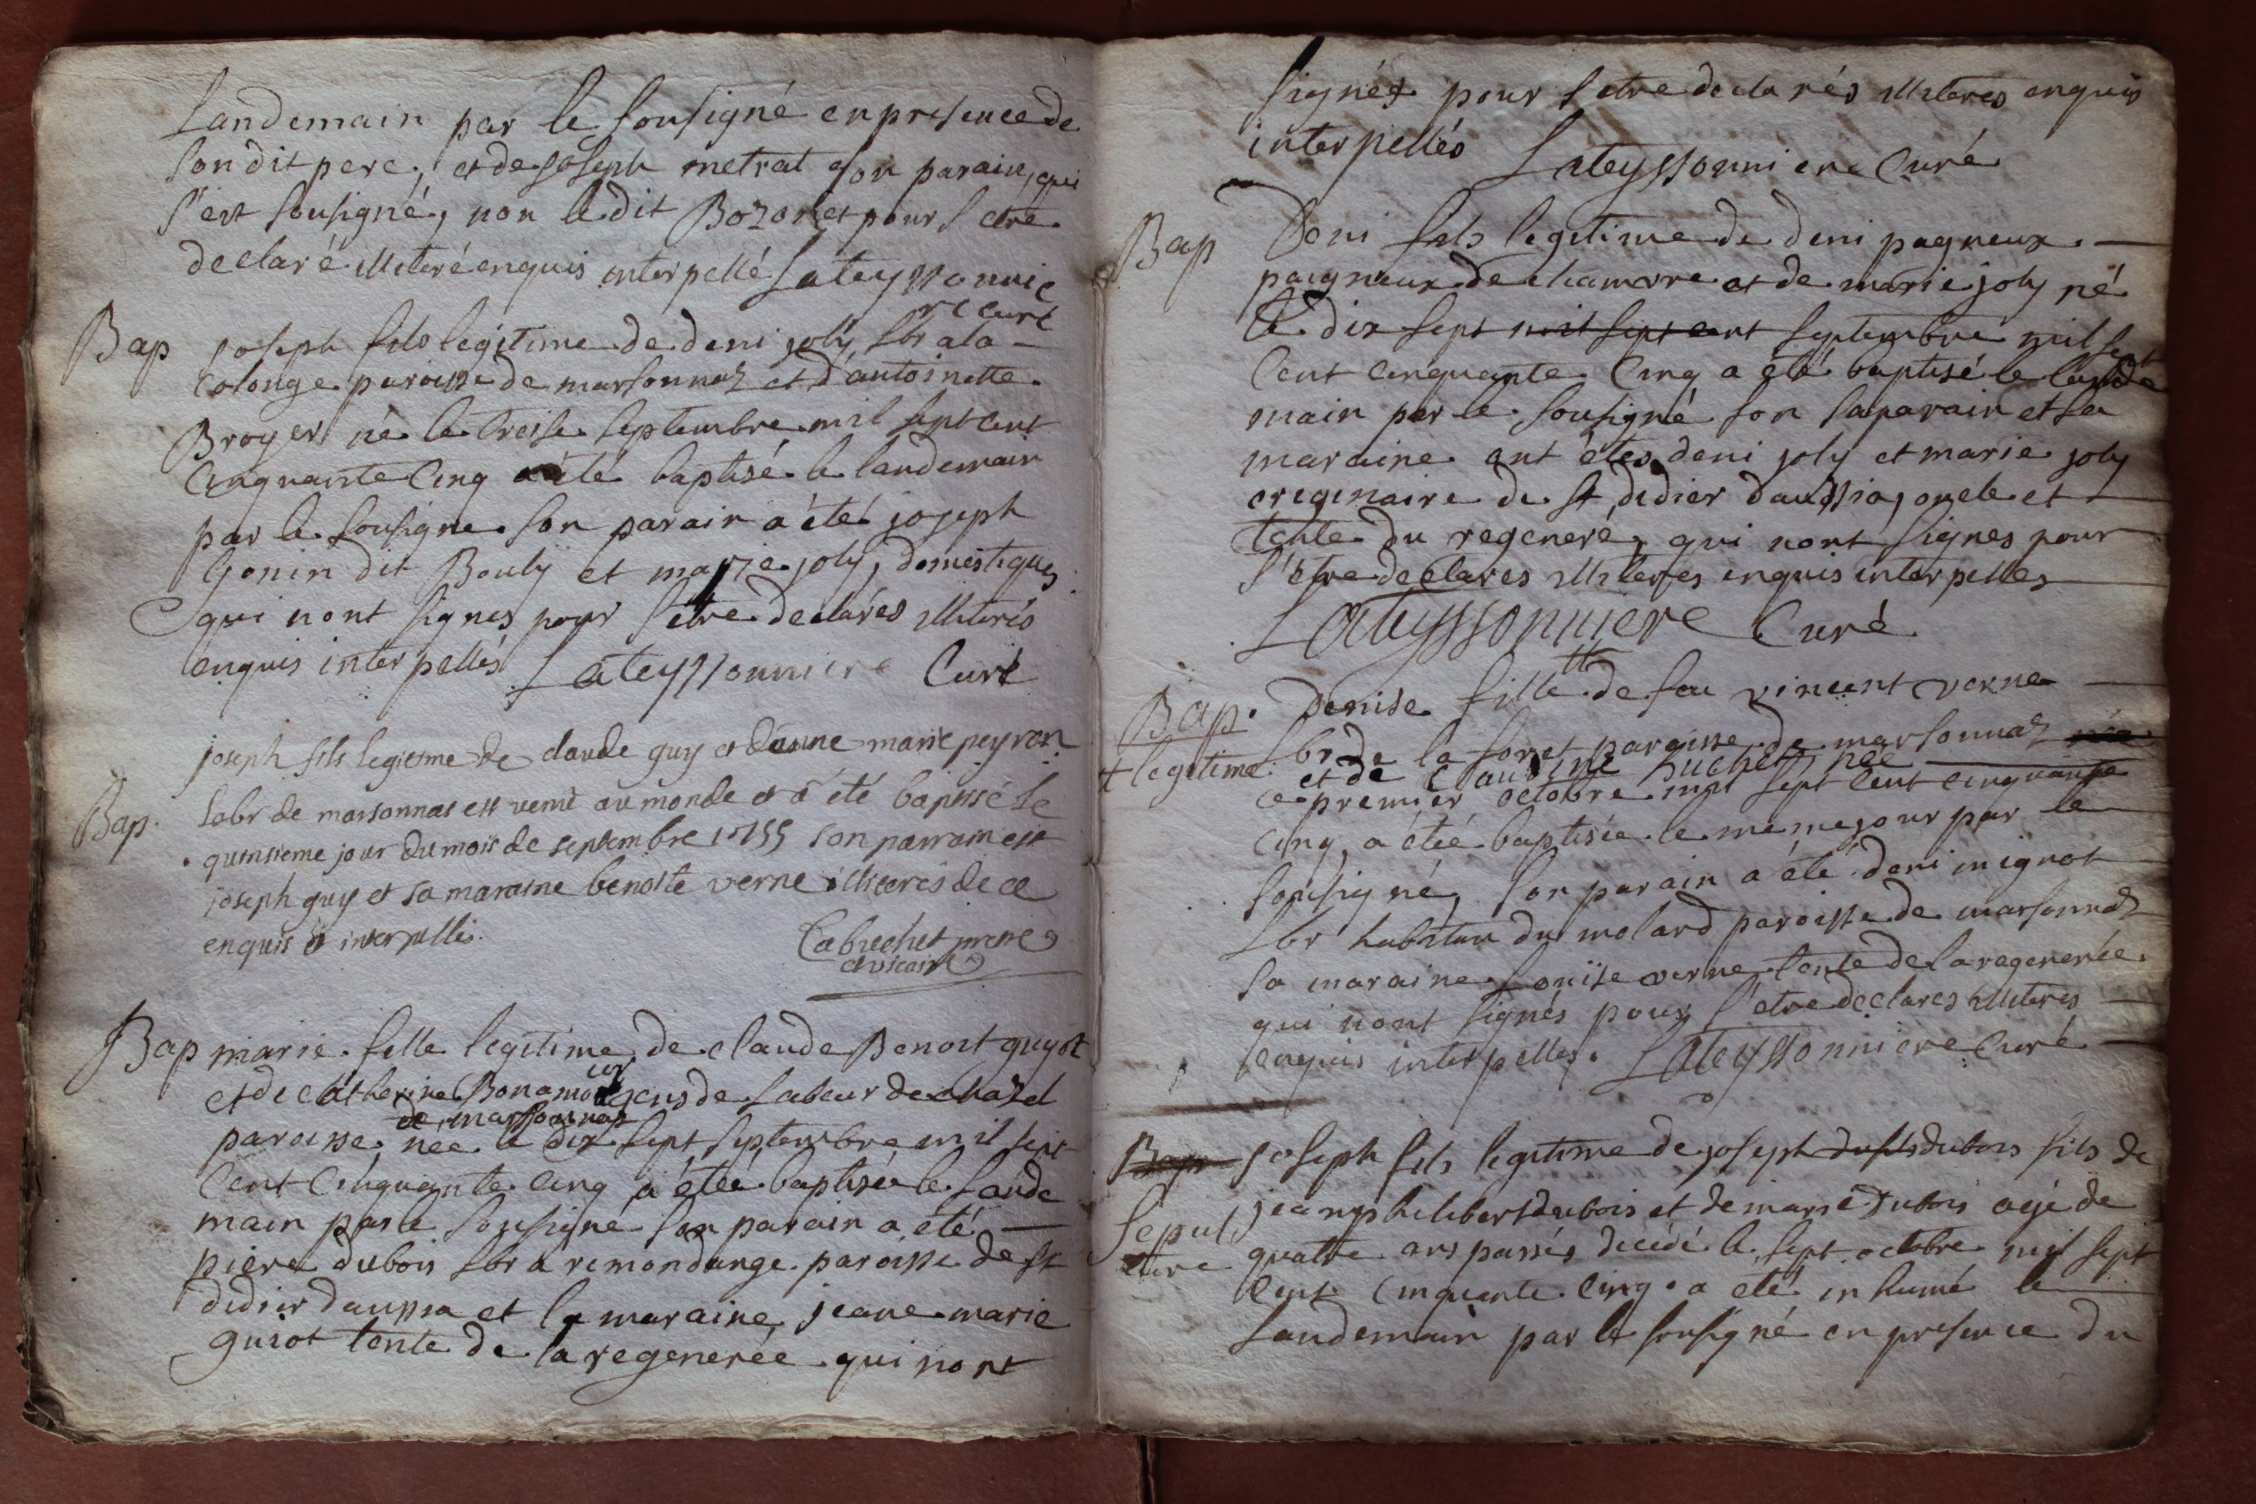 Landemain par le sousigné en presence de
son dit pere, et de joseph metrat son parain, qui
s'est sousigné, non le dit Bozonet pour s etre
declaré illiteré enquis interpellé Lateyssonnie
re curé
Bap joseph fils legitime de deni joly lbr a la
colonge paroisse de marsonnaz et d'antoinette
Broyer né le treise septembre mil sept cent
cinquante cinq a été baptisé le landemain
par le sousigne son parain a été joseph
Gonin dit Bouly et marie joly, domestiques
qui nont signes pour s etre declarés illiterés
enquis interpellés Lateyssonniere Curé
joseph fils legitme de claude guy et danne marie peyron
Bap. labr de marsonnas est venu au monde et a été baptisé le
quinsieme jour du mois de septembre 1755 son parrain est
joseph guy et sa maraine benoite verne illiterés de ce
enquis et interpellés. Cabuchet pretre
et vicaire
Bap marie fille legitime de claude Benoit guyot
et de catherine Bonamour gens de labeur de chazel
de marsonnas
paroisse née le dix sept septembre mil sept
cent cinquante cinq a étéé baptisée le lande
main par le sousigné son parain a été
piere dubois lbr a remondange paroisse de st
didier daussia et la maraine jeane marie
guiot tente de la regenerée qui nont
signés pour s etre declarés illiterés enquis
interpellés Lateyssonniere Curé
Bap Deni fils legitime de deni pagneux
paigneux de chamvre et de marie joly né
le dix sept mil sept cent septembre mil sept
cent cinquante cinq a été baptisé le lande
main par le sousigné son parain et sa
maraine ont étes deni joly et marie joly
origenaire de st didier daussia, oncle et
tente du regeneré, qui nont signes pour
s'etre declares illiteres enquis interpelles
Lateyssonniere Curé
Bap. Denise fille de feu vincent verne
+ legitime lbr de la foret paroisse de marsonnaz née
et de claudine buchet, née
ce premier octobre mil sept cent cinquante
cinq, a étéé baptisée le meme jour par le
sousigné, son parain a été deni mignot
lbr habitan du molard paroisse de marsonnaz
sa maraine Louise verne tente de la regenerée
qui nont signés pour s'etre declares illiteres
enquis interpelles. Lateyssonniere Curé
Bap joseph fils legitime de joseph dufils dubois fils de
Sepul jean philibert dubois et de marie dubois agé de
ture quatre ans passés decédé le sept octobre mil sept
cent cinquante cinq a été inhumé le
landemain par le sousigné en presence du